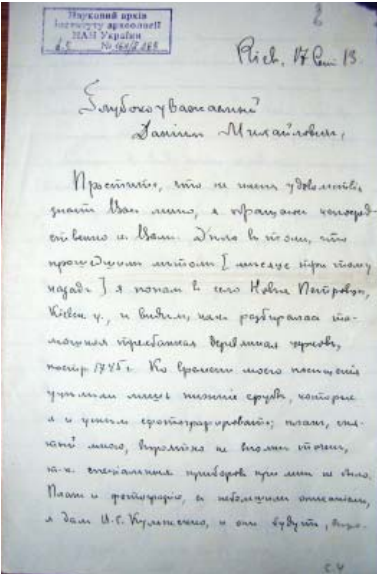 Науковий архів
Інституту археології
НАН України
№
Кіев, 17 Сент 13.
Глубокоуважаемый
Даніил Михайлович,
Простите, что не имея удовольствія
знать Вас лично, я обращаюсь непосред-
ственно к Вам. Дело в том, что
прошедшим летом [ месяца три тому
назад ] я попал в село Новые Петровцы,
Кіевск. у., и видел, как разбиралась та-
мошняя трехбанная деревянная церковь,
постр. 1745 г. Ко времени моего посещенія
уцелели лишь нижніе срубы, которые
я и успел сфотографировать; план, сня-
тый мною, вероятно не вполне точен,
т.к. спеціальных приборов при мне не было.
План и фотографію, с небольшим описаніем,
я дал И.С. Кульженко, и они будут, веро-
с. 4